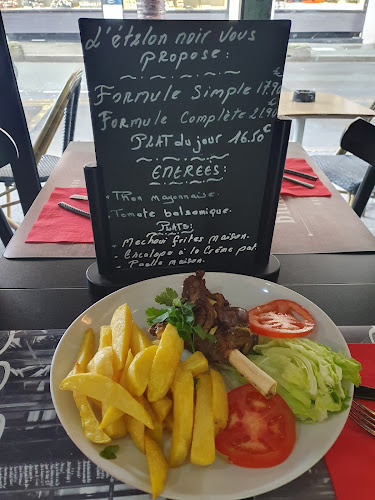 L'étalon noir vous
propose :
Formule Simple 17.90 €
Formule Complète 21.90 €
Plat du jour 16.50 €
Entrees :
- Thon mayonnaise
- Tomate balsamique.
Plats :
- Mechoui frites maison.
- Escalope a la Crème pat.
- Paella maison.